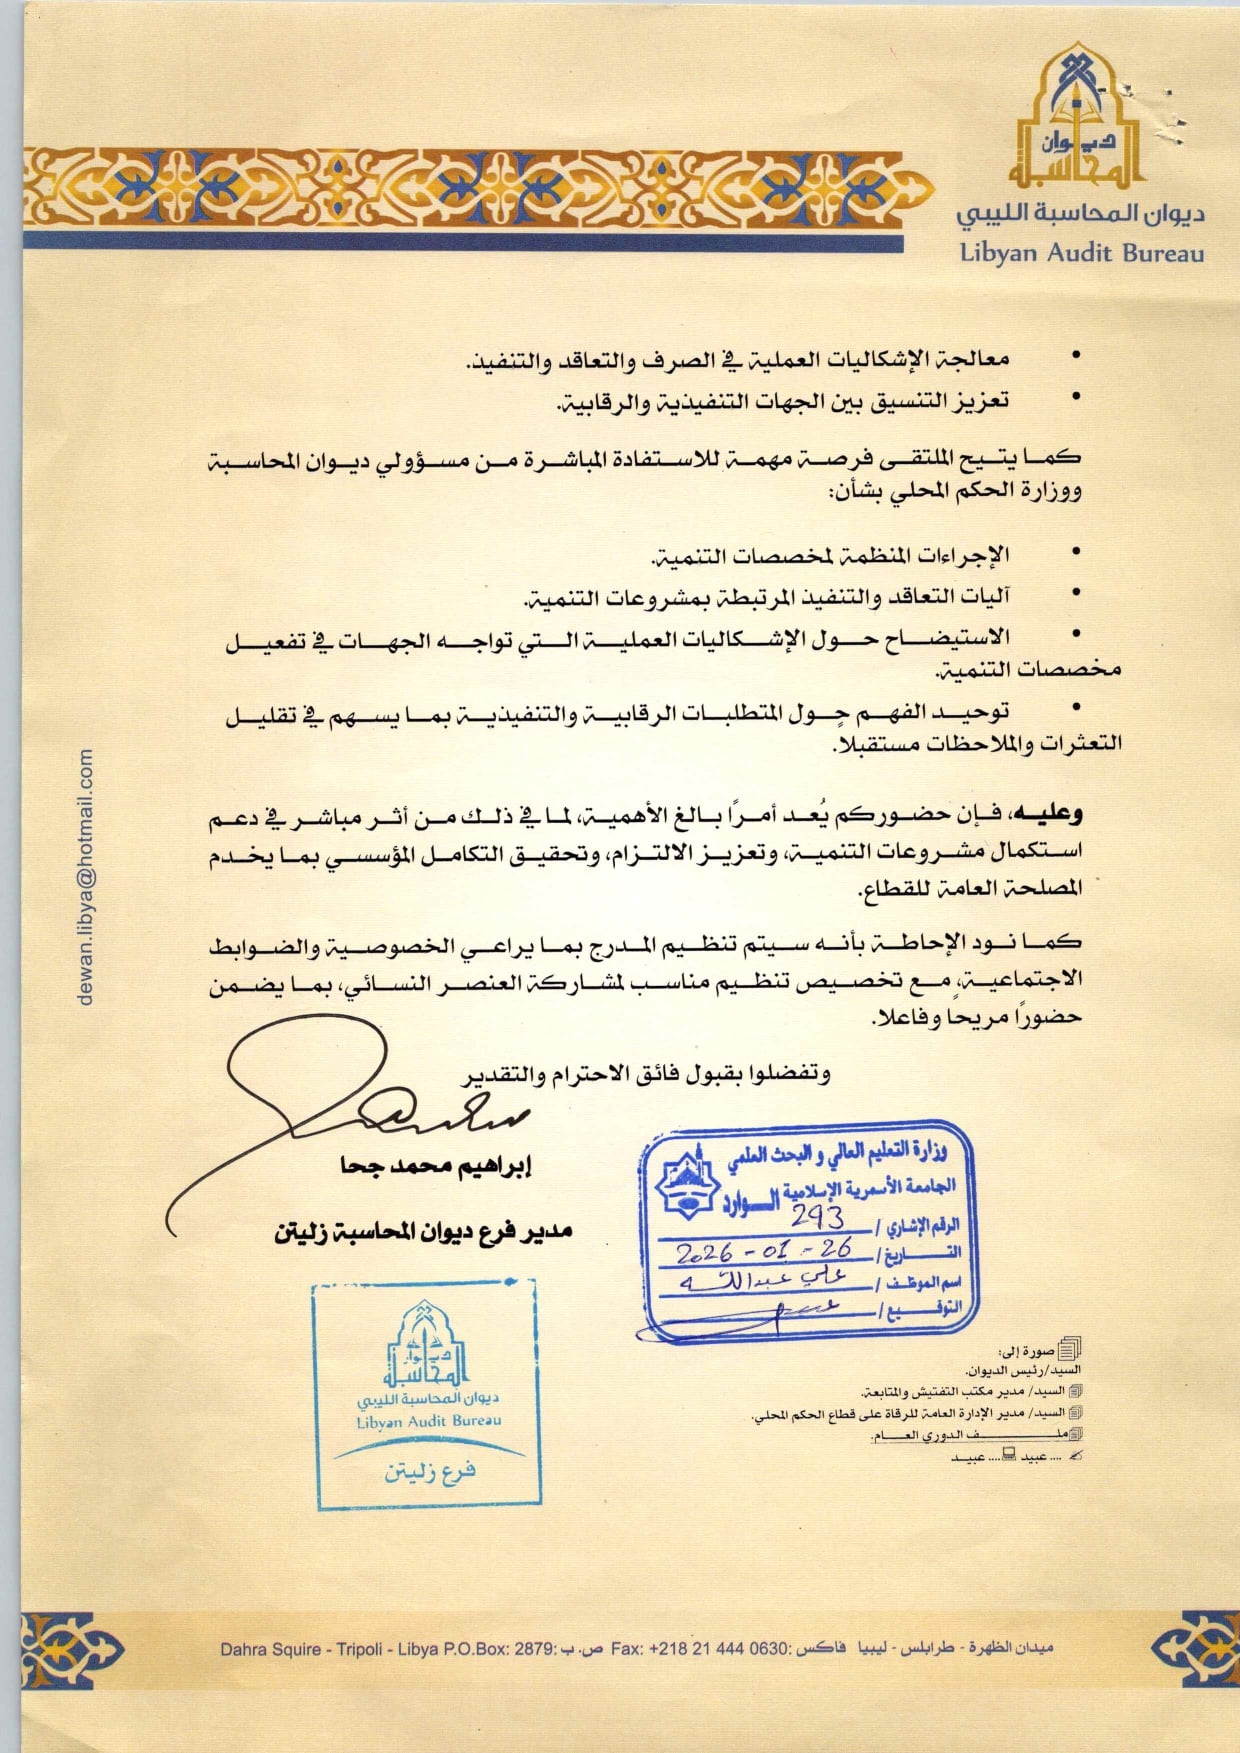 ديوان المحاسبة
ديوان المحاسبة الليبي
Libyan Audit Bureau
• معالجة الإشكاليات العملية في الصرف والتعاقد والتنفيذ.
• تعزيز التنسيق بين الجهات التنفيذية والرقابية.
كما يتيح الملتقى فرصة مهمة للاستفادة المباشرة من مسؤولي ديوان المحاسبة
ووزارة الحكم المحلي بشأن:
• الإجراءات المنظمة لمخصصات التنمية.
• آليات التعاقد والتنفيذ المرتبطة بمشروعات التنمية.
• الاستيضاح حول الإشكاليات العملية التي تواجه الجهات في تفعيل
مخصصات التنمية.
• توحيد الفهم حول المتطلبات الرقابية والتنفيذية بما يسهم في تقليل
التعثرات والملاحظات مستقبلا.
وعليه، فإن حضوركم يُعد أمرًا بالغ الأهمية، لما في ذلك من أثر مباشر في دعم
استكمال مشروعات التنمية، وتعزيز الالتزام، وتحقيق التكامل المؤسسي بما يخدم
المصلحة العامة للقطاع.
كما نود الإحاطة بأنه سيتم تنظيم المدرج بما يراعي الخصوصية والضوابط
الاجتماعية، مع تخصيص تنظيم مناسب لمشاركة العنصر النسائي، بما يضمن
حضورًا مريحا وفاعلا.
وتفضلوا بقبول فائق الاحترام والتقدير
إبراهيم محمد جحا
مدير فرع ديوان المحاسبة زليتن
وزارة التعليم العالي و البحث العلمي
الجامعة الأسمرية الإسلامية الوارد
الرقم الإشاري / 293
التاريخ / 26 - 01 - 2026
اسم الموظف / علي عبدالله
التوقيع /
ديوان المحاسبة
ديوان المحاسبة الليبي
Libyan Audit Bureau
فرع زليتن
صورة إلى:
السيد/رئيس الديوان.
السيد/ مدير مكتب التفتيش والمتابعة.
السيد/ مدير الإدارة العامة للرقاة على قطاع الحكم المحلي.
ملف الدوري العام.
.... عبيد .... عبيد
dewan.libya@hotmail.com
ميدان الظهرة - طرابلس - ليبيا فاكس: Fax: +218 21 444 0630 ص. ب: Dahra Squire - Tripoli - Libya P.O.Box: 2879